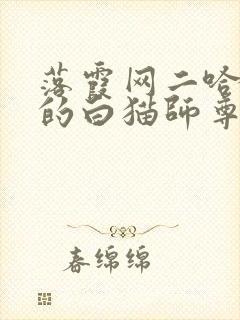 落霞网二哈
的白猫師尊
春绵绵